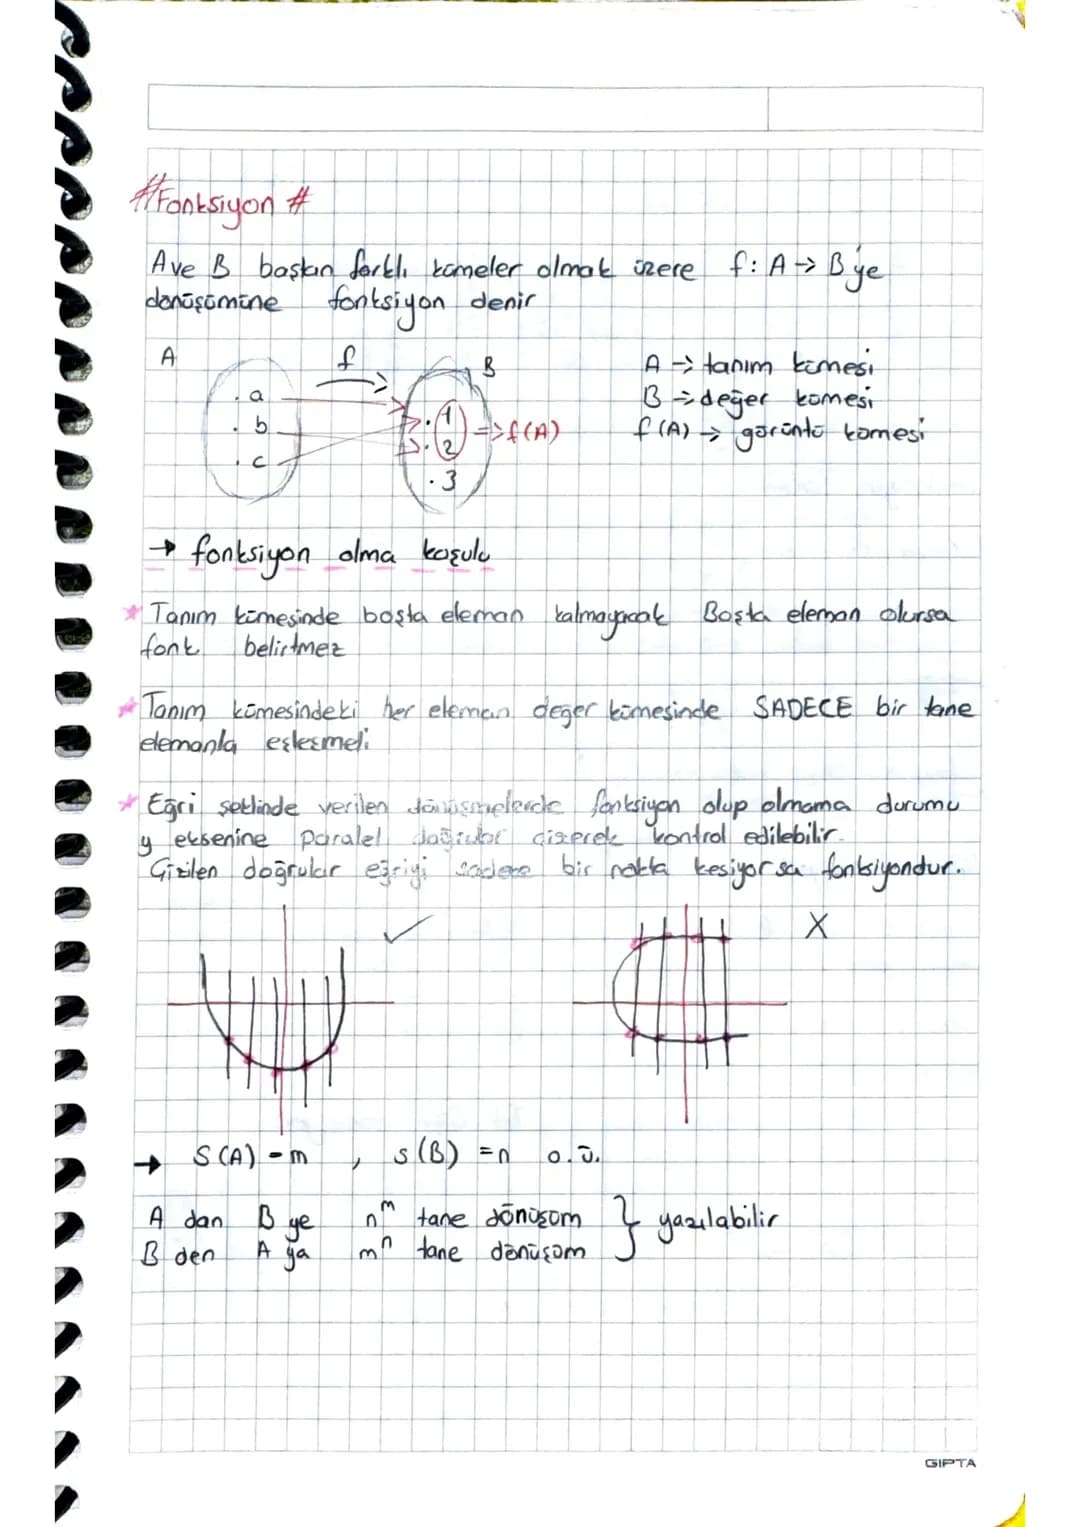 #Fonksiyon #
A ve B boştan farklı kümeler olmak üzere f: A → B'ye
dönüşümüne fonksiyon denir
A f B
. a
. b
. c
. 1
. 2
. 3
=> f(A)
A → tanım kümesi
B → değer kümesi
f(A) → görüntü kümesi
→ fonksiyon olma koşulu
* Tanım kümesinde boşta eleman kalmayacak Boşta eleman olursa
fonk belirtmez
* Tanım kümesindeki her eleman değer kümesinde SADECE bir tane
elemanla eşleşmeli
* Eğri şeklinde verilen dönüşmelerde fonksiyon olup olmama durumu
y eksenine paralel doğrular çizerek kontrol edilebilir.
Çizilen doğrular eğriyi sadece bir nokta kesiyorsa fonksiyondur.
✓ X
→ S(A) = m , s(B) = n o.ü.
A dan B ye n^m tane dönüşüm } yazılabilir
B den A ya m^n tane dönüşüm
GIPTA